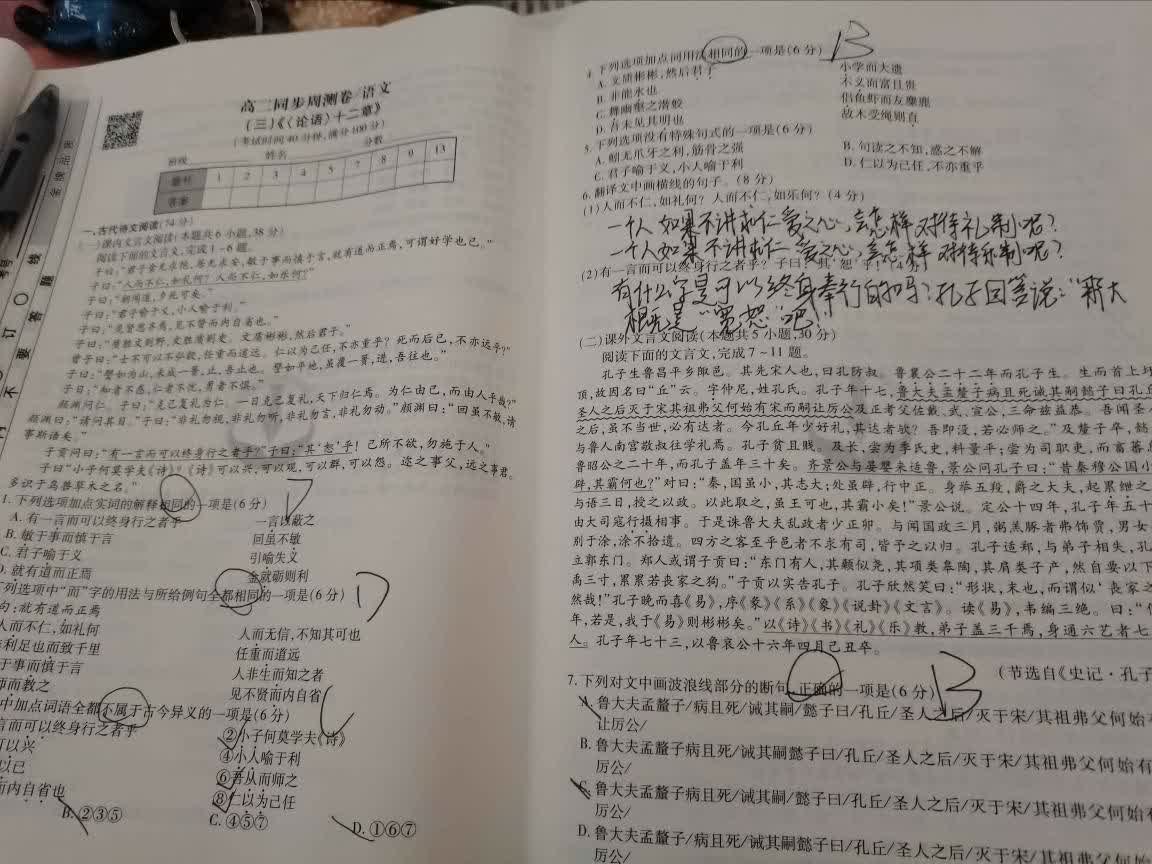 高二同步周测卷/语文
(三)《〈论语〉十二章》
(考试时间40分钟,满分100分)
班级 姓名 分数
题号 1 2 3 4 5 7 8 9 13
答案
一、古代诗文阅读(74分)
(一)课内文言文阅读(本题共6小题,38分)
阅读下面的文言文,完成1~6题。
子曰:“君子食无求饱,居无求安,敏于事而慎于言,就有道而正焉,可谓好学也已。”
子曰:“人而不仁,如礼何?人而不仁,如乐何?”
子曰:“朝闻道,夕死可矣。”
子曰:“君子喻于义,小人喻于利。”
子曰:“见贤思齐焉,见不贤而内自省也。”
子曰:“质胜文则野,文胜质则史。文质彬彬,然后君子。”
曾子曰:“士不可以不弘毅,任重而道远。仁以为己任,不亦重乎?死而后已,不亦远乎?”
子曰:“譬如为山,未成一篑,止,吾止也。譬如平地,虽覆一篑,进,吾往也。”
子曰:“知者不惑,仁者不忧,勇者不惧。”
颜渊问仁。子曰:“克己复礼为仁。一日克己复礼,天下归仁焉。为仁由己,而由人乎哉?”
颜渊曰:“请问其目。”子曰:“非礼勿视,非礼勿听,非礼勿言,非礼勿动。”颜渊曰:“回虽不敏,请
事斯语矣。”
子贡问曰:“有一言而可以终身行之者乎?”子曰:“其‘恕’乎!己所不欲,勿施于人。”
子曰“小子何莫学夫《诗》?《诗》可以兴,可以观,可以群,可以怨。迩之事父,远之事君。
多识于鸟兽草木之名。”
1.下列选项加点实词的解释相同的一项是(6分) D
A.有一言而可以终身行之者乎 一言以蔽之
B.敏于事而慎于言 回虽不敏
C.君子喻于义 引喻失义
D.就有道而正焉 金就砺则利
下列选项中“而”字的用法与所给例句全都相同的一项是(6分) D
句:就有道而正焉
人而不仁,如礼何 人而无信,不知其可也
利足也而致千里 任重而道远
于事而慎于言 人非生而知之者
师而教之 见不贤而内自省
中加点词语全都不属于古今异义的一项是(6分) C
言而可以终身行之者乎 ②小子何莫学夫《诗》
可以兴 ④小人喻于利
以已 ⑥吾从而师之
而内自省也 ⑧仁以为己任
B.②③⑤ C.④⑤⑦ D.①⑥⑦
4.下列选项加点词用法相同的一项是(6分) B
A.文质彬彬,然后君子 小学而大遗
B.非能水也 不义而富且贵
C.舞幽壑之潜蛟 侣鱼虾而友麋鹿
D.吾未见其明也 故木受绳则直
5.下列选项没有特殊句式的一项是(6分)
A.蚓无爪牙之利,筋骨之强 B.句读之不知,惑之不解
C.君子喻于义,小人喻于利 D.仁以为己任,不亦重乎
6.翻译文中画横线的句子。(8分)
(1)人而不仁,如礼何?人而不仁,如乐何?(4分)
一个人如果不讲求仁爱之心,会怎样对待礼制呢?
一个人如果不讲求仁爱之心,会怎样对待乐制呢?
(2)有一言而可以终身行之者乎?子曰:“其‘恕’乎!(4分)
有什么字是可以终身奉行的吗?孔子回答说:“那大
概就是“宽恕”吧!
(二)课外文言文阅读(本题共5小题,30分)
阅读下面的文言文,完成7~11题。
孔子生鲁昌平乡陬邑。其先宋人也,曰孔防叔。鲁襄公二十二年而孔子生。生而首上圩
顶,故因名曰“丘”云。字仲尼,姓孔氏。孔子年十七,鲁大夫孟釐子病且死诫其嗣懿子曰孔丘
圣人之后灭于宋其祖弗父何始有宋而嗣让厉公及正考父佐戴、武、宣公,三命兹益恭。吾闻圣人
之后,虽不当世,必有达者。今孔丘年少好礼,其达者欤?吾即没,若必师之。”及釐子卒,懿
与鲁人南宫敬叔往学礼焉。孔子贫且贱。及长,尝为季氏史,料量平;尝为司职吏,而畜蕃息
鲁昭公之二十年,而孔子盖年三十矣。齐景公与晏婴来适鲁,景公问孔子曰:“昔秦穆公国小
辟,其霸何也?”对曰:“秦,国虽小,其志大;处虽辟,行中正。身举五羖,爵之大夫,起累绁之
与语三日,授之以政。以此取之,虽王可也,其霸小矣!”景公说。定公十四年,孔子年五十
由大司寇行摄相事。于是诛鲁大夫乱政者少正卯。与闻国政三月,粥羔豚者弗饰贾,男女
别于涂,涂不拾遗。四方之客至乎邑者不求有司,皆予之以归。孔子适郑,与弟子相失,孔
立郭东门。郑人或谓子贡曰:“东门有人,其颡似尧,其项类皋陶,其肩类子产,然自要以下
禹三寸,累累若丧家之狗。”子贡以实告孔子。孔子欣然笑曰:“形状,末也,而谓似‘丧家之
然哉!”孔子晚而喜《易》,序《彖》《系》《象》《说卦》《文言》。读《易》,韦编三绝。曰:“
年,若是,我于《易》则彬彬矣。”以《诗》《书》《礼》《乐》教,弟子盖三千焉,身通六艺者七
人。孔子年七十三,以鲁哀公十六年四月己丑卒。
(节选自《史记·孔子
7.下列对文中画波浪线部分的断句,正确的一项是(6分) B
A.鲁大夫孟釐子/病且死/诫其嗣/懿子曰/孔丘/圣人之后/灭于宋/其祖弗父何始有
让厉公/
B.鲁大夫孟釐子病且死/诫其嗣懿子曰/孔丘/圣人之后/灭于宋/其祖弗父何始有
厉公/
C.鲁大夫孟釐子病且死/诫其嗣/懿子曰/孔丘/圣人之后/灭于宋/其祖弗父何始有
厉公/
D.鲁大夫孟釐子/病且死/诫其嗣懿子曰/孔丘/圣人之后/灭于宋/其祖弗父何始
厉公/